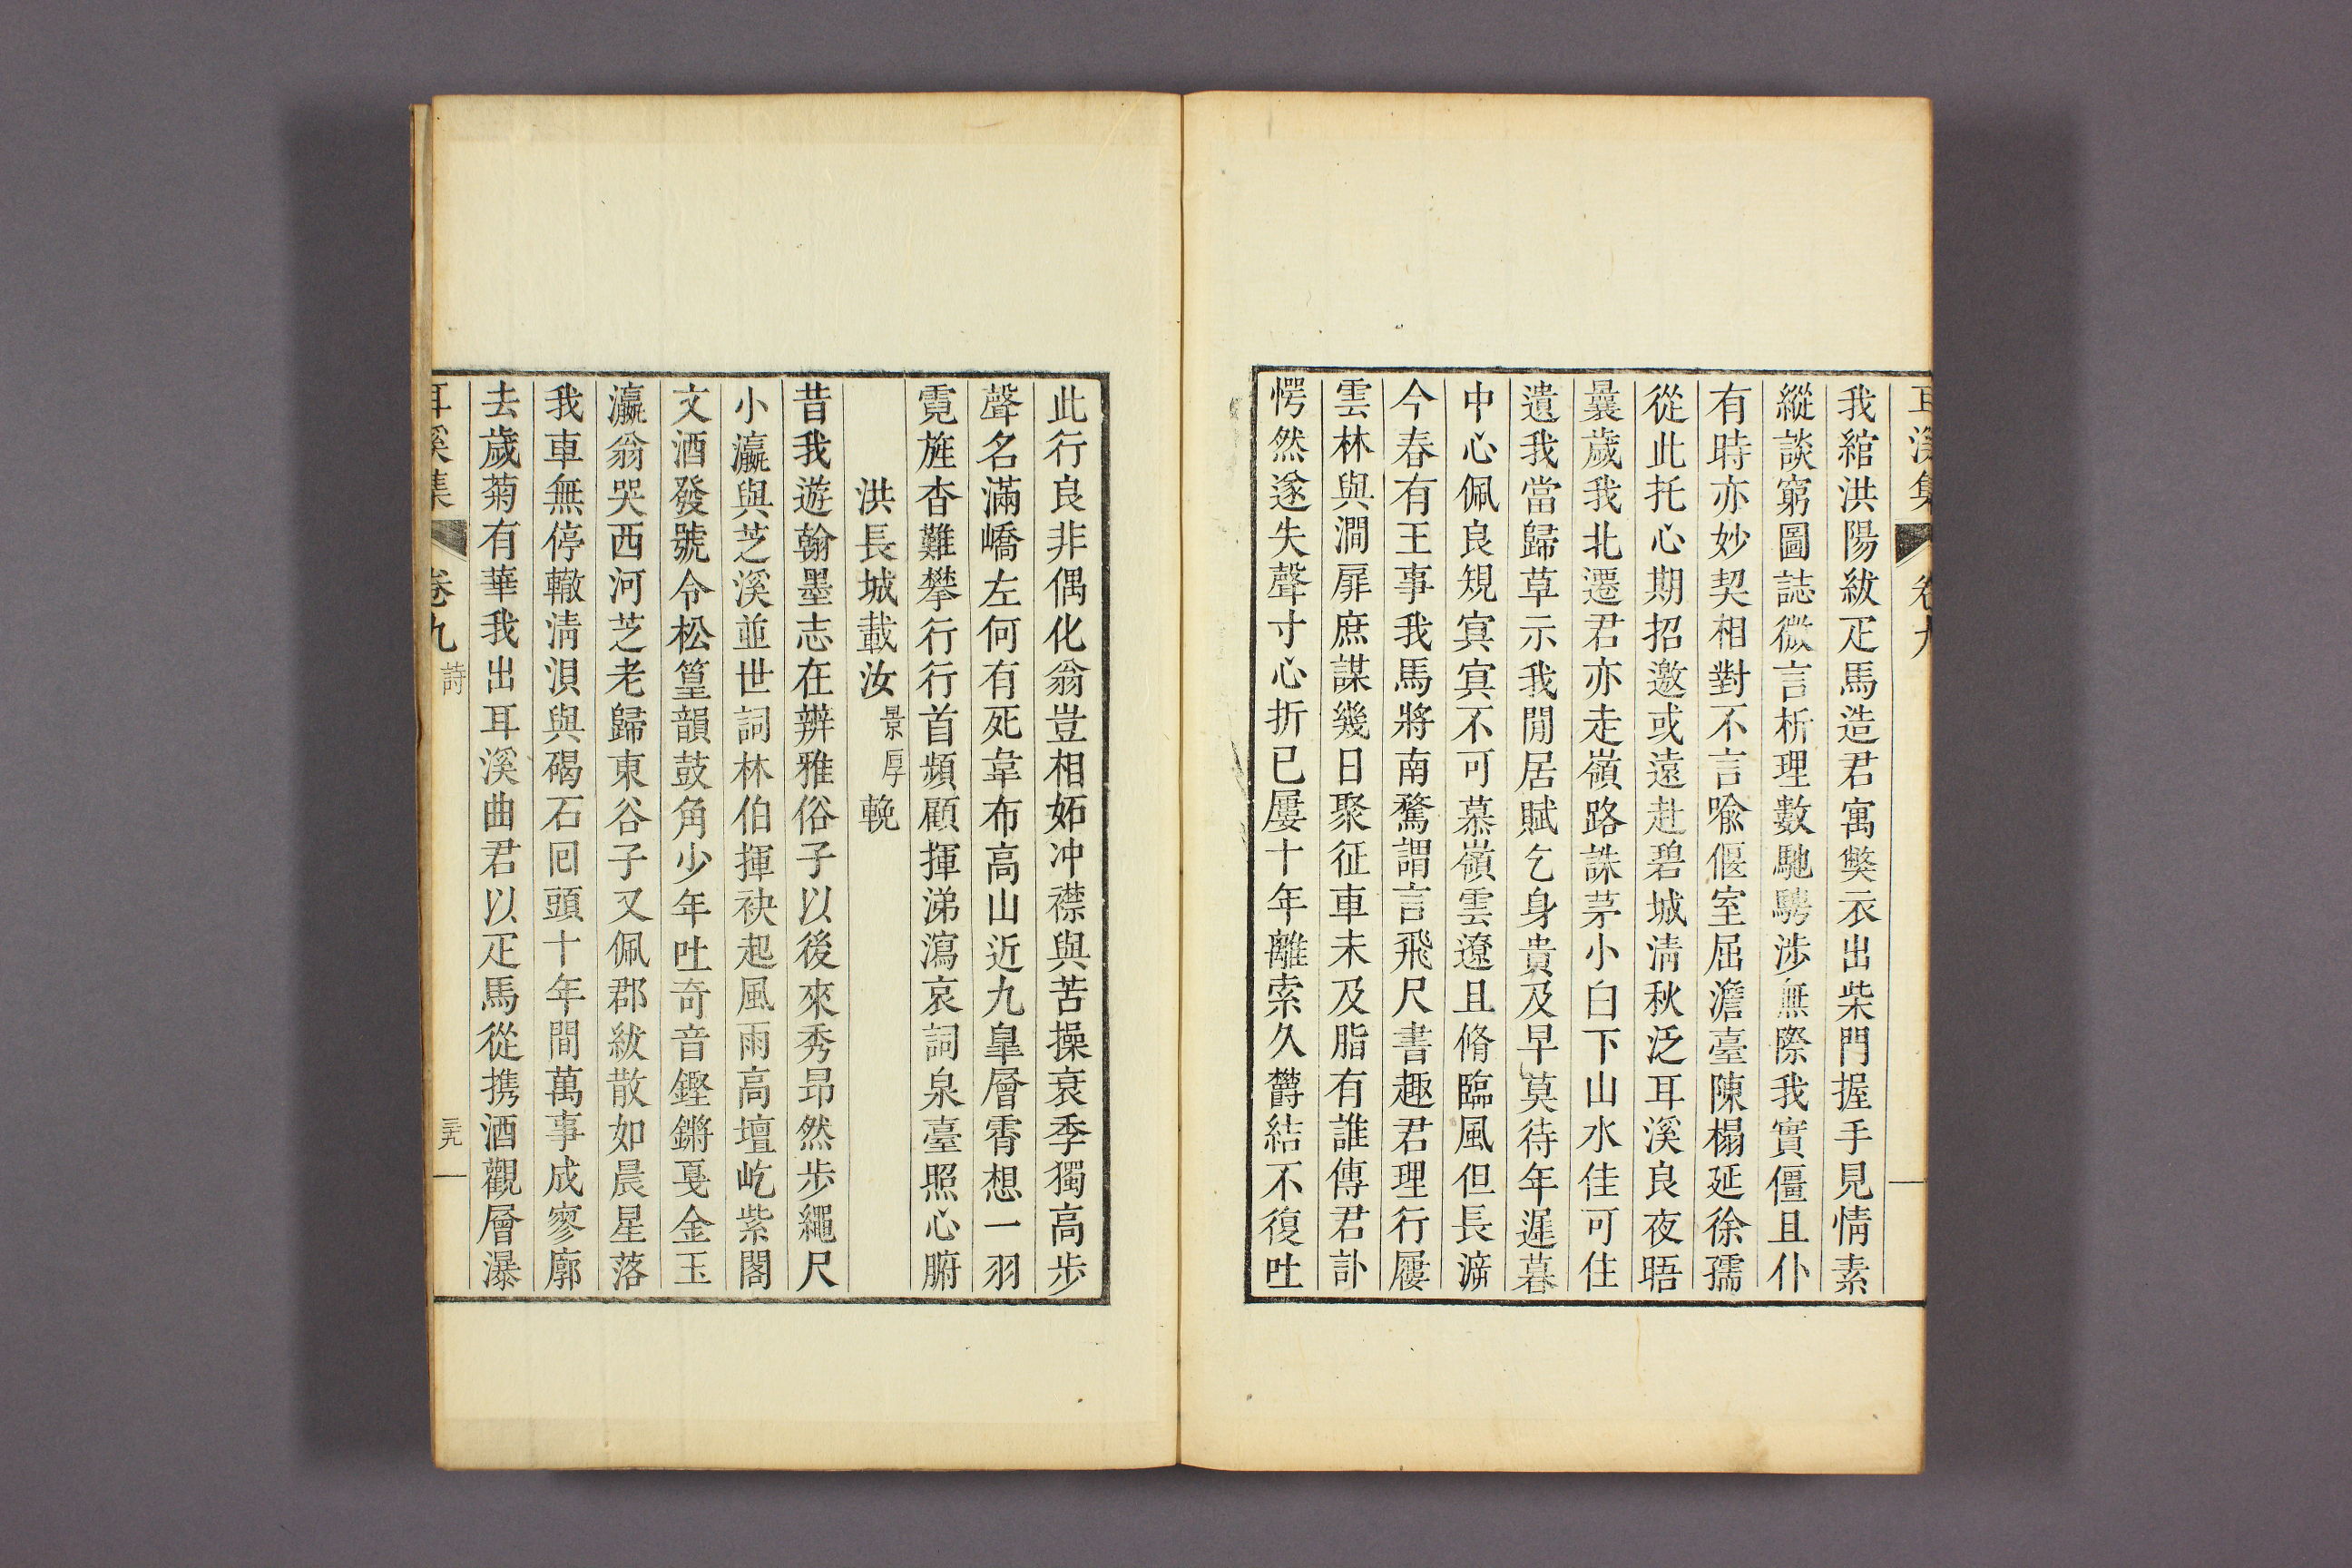 耳溪集 卷九
我綰洪陽紱疋馬造君寓獘衣出柴門握手見情素
縱談窮圖誌微言析理數馳騁涉無際我實僵且仆
有時亦妙契相對不言喩偃室屈澹臺陳榻延徐孺
從此托心期招邀或遠赴碧城淸秋泛耳溪良夜晤
曩歲我北遷君亦走嶺路誅茅小白下山水佳可住
遺我當歸草示我閒居賦乞身貴及早莫待年遲暮
中心佩良規寘寘不可慕嶺雲遼且脩臨風但長㴑
今春有王事我馬將南騖謂言飛尺書趣君理行屨
雲林與澗扉庶謀幾日聚征車未及脂有誰傳君訃
愕然遂失聲寸心折已屢十年離索久欝結不復吐
此行良非偶化翁豈相妬冲襟與苦操衰季獨高步
聲名滿嶠左何有死韋布高山近九臯層霄想一羽
霓旌杳難攀行行首頻顧揮涕瀉哀詞泉臺照心腑
洪長城載汝景厚輓
昔我遊翰墨志在辨雅俗子以後來秀昂然步繩尺
小瀛與芝溪並世詞林伯揮袂起風雨高壇屹紫閣
文酒發號令松篁韻鼓角少年吐奇音鏗鏘戛金玉
瀛翁哭西河芝老歸東谷子又佩郡紱散如晨星落
我車無停轍淸淚與碣石回頭十年間萬事成寥廓
去歲菊有華我出耳溪曲君以疋馬從携酒觀層瀑
耳溪集 卷九 詩 三九